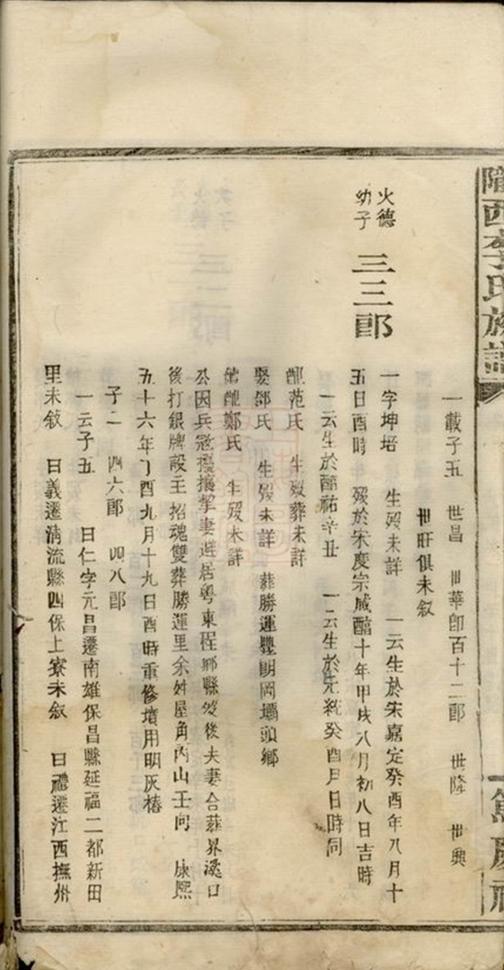 隴西李氏族譜
篤慶
一載子五 世昌 世華郎百十二郎 世隆 世興
世旺俱未敘
火德
幼子
三三郎
一字坤培 生歿未詳 一云生於宋嘉定癸酉年八月十
五日酉時 歿於宋度宗咸淳十年甲戌八月初八日吉時
一云生於淳祐辛丑 一云生於元統癸酉月日時同
配范氏 生歿葬未詳
娶鄒氏 生歿未詳 葬勝運豐朗岡壩頭鄉
繼配鄭氏 生歿未詳
公因兵寇擾攘挈妻遷居粵東程鄉縣歿後夫妻合葬界溪口
後打銀牌設主招魂雙葬勝運里余屋角內山壬向 康熙
五十六年丁酉九月十九日酉時重修墳用明灰樁
子二 四六郎 四八郎
一云子五 曰仁字元昌遷南雄保昌縣延福二都新田
里未敘 曰義遷清流縣四保上寮未敘 曰禮遷江西撫州